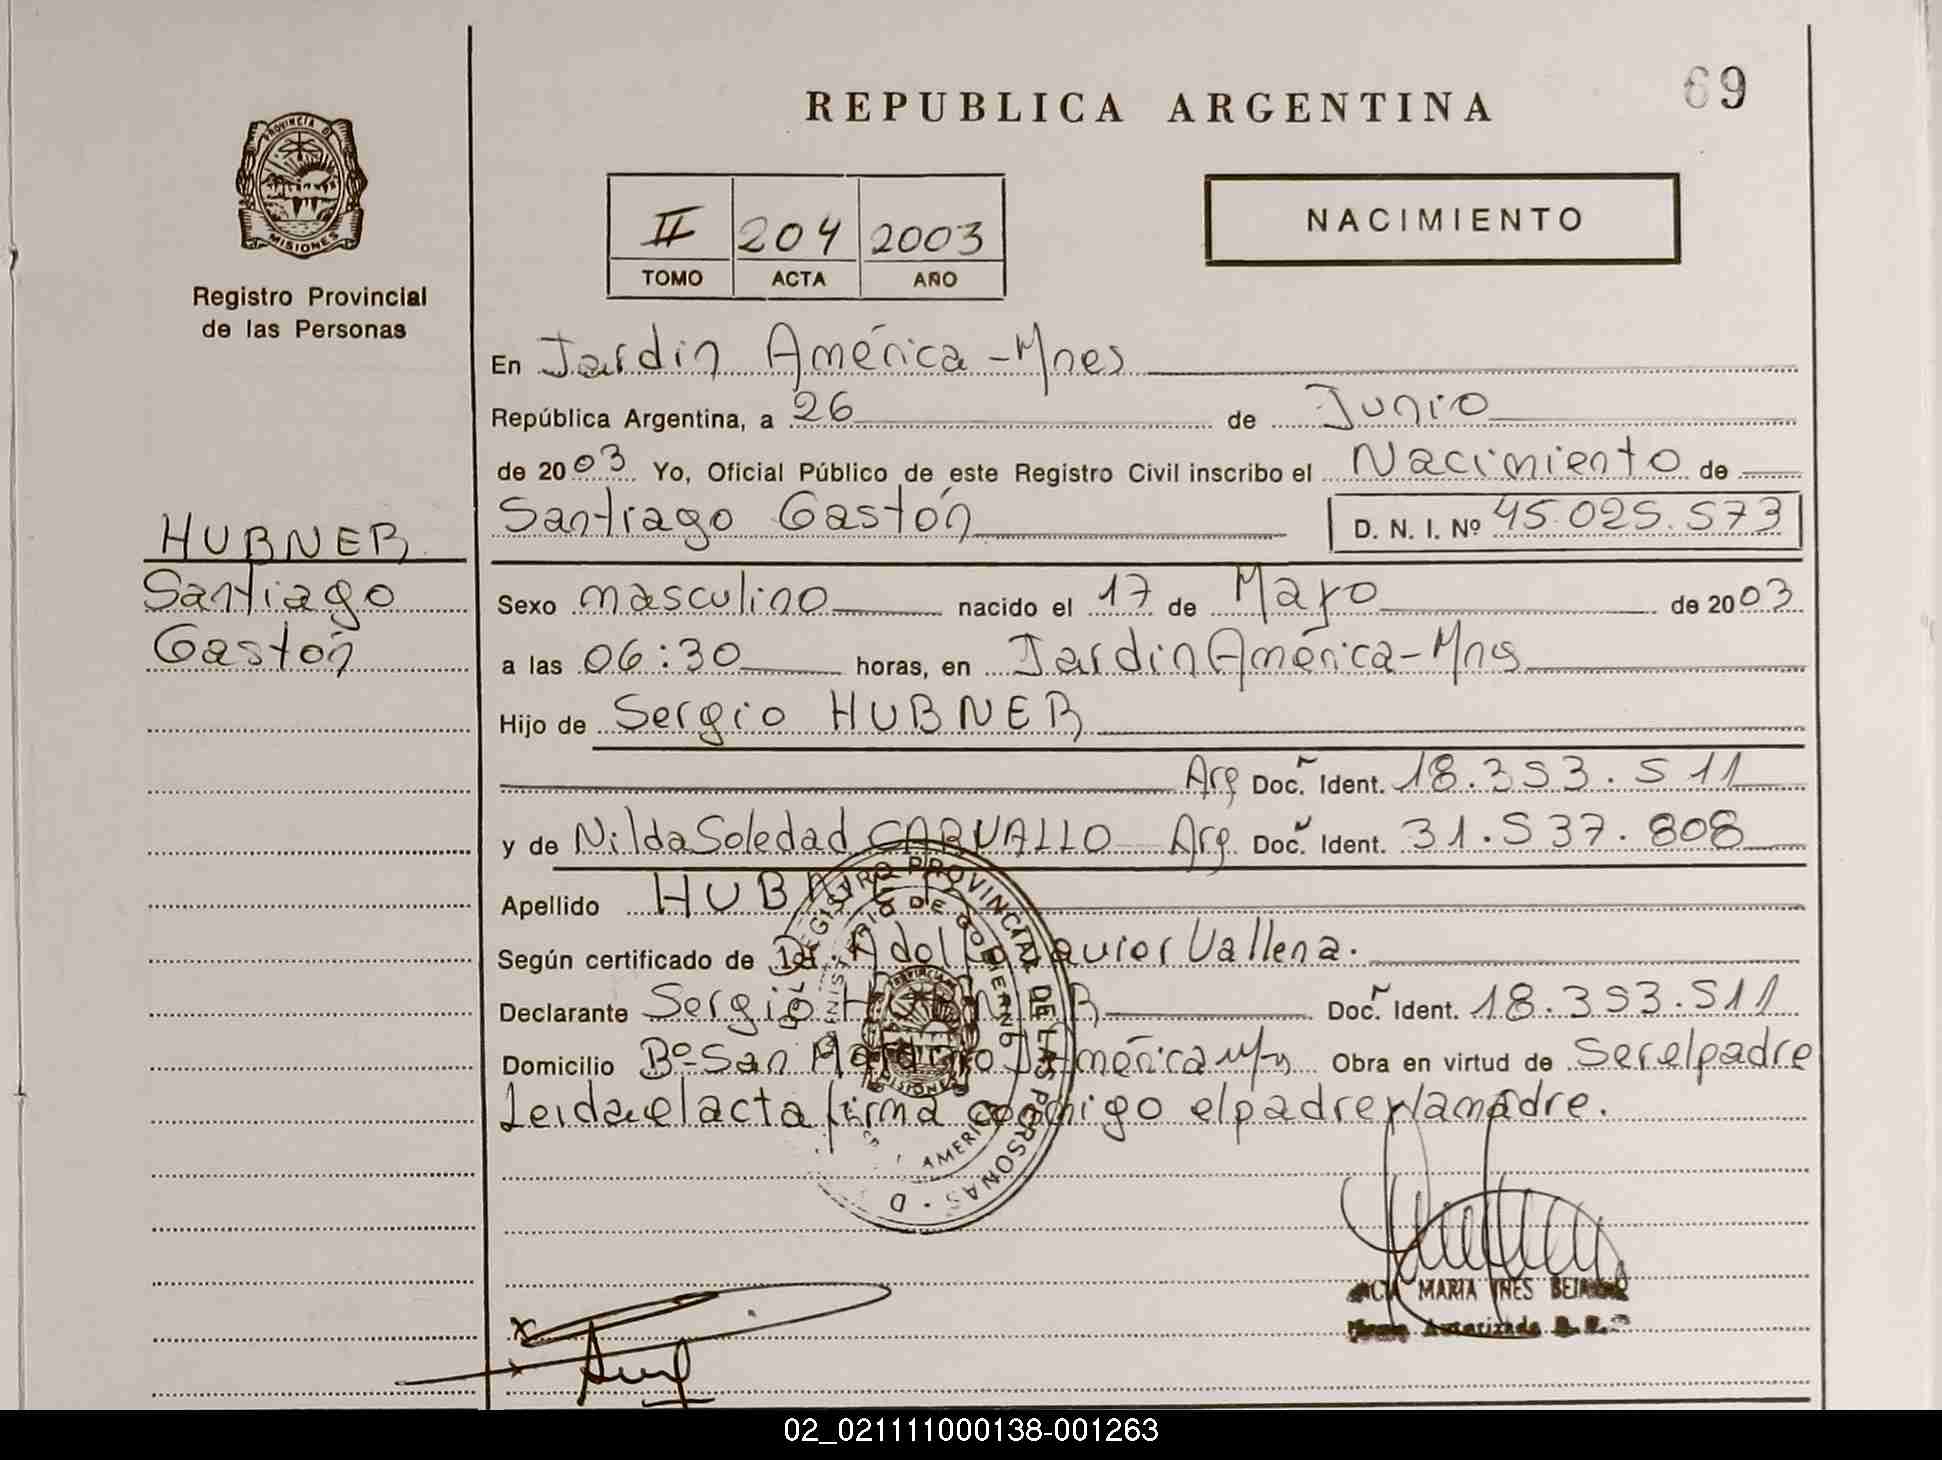 REPUBLICA ARGENTINA
69
PROVINCIA DE
MISIONES
Registro Provincial
de las Personas
II 204 2003
TOMO ACTA AÑO
NACIMIENTO
En Jardín América - Mnes
República Argentina, a 26 de Junio
de 2003 Yo, Oficial Público de este Registro Civil inscribo el Nacimiento de
Santiago Gastón D. N. I. Nº 45.025.573
HUBNER
Santiago
Gastón
Sexo masculino nacido el 17 de Mayo de 2003
a las 06:30 horas, en Jardín América - Mns
Hijo de Sergio HUBNER
Arg Doc. Ident. 18.353.511
y de Nilda Soledad CARVALLO Arg. Doc. Ident. 31.537.808
Apellido HUBNER
Según certificado de Dr. Adolfo Vallena.
Declarante Sergio HUBNER Doc. Ident. 18.353.511
Domicilio Bº San J. América Obra en virtud de Ser el padre
Leida el acta firma conmigo el padre y la madre.
REGISTRO PROVINCIAL DE LAS PERSONAS
MINISTERIO DE GOBIERNO
AMERICA
MISIONES
MARIA INES
Autorizada
02_021111000138-001263